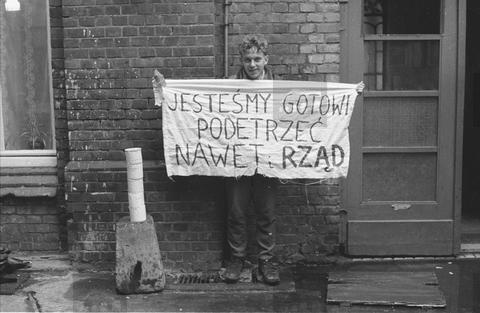 JESTEŚMY GOTOWI
PODETRZEĆ
NAWET i RZĄD